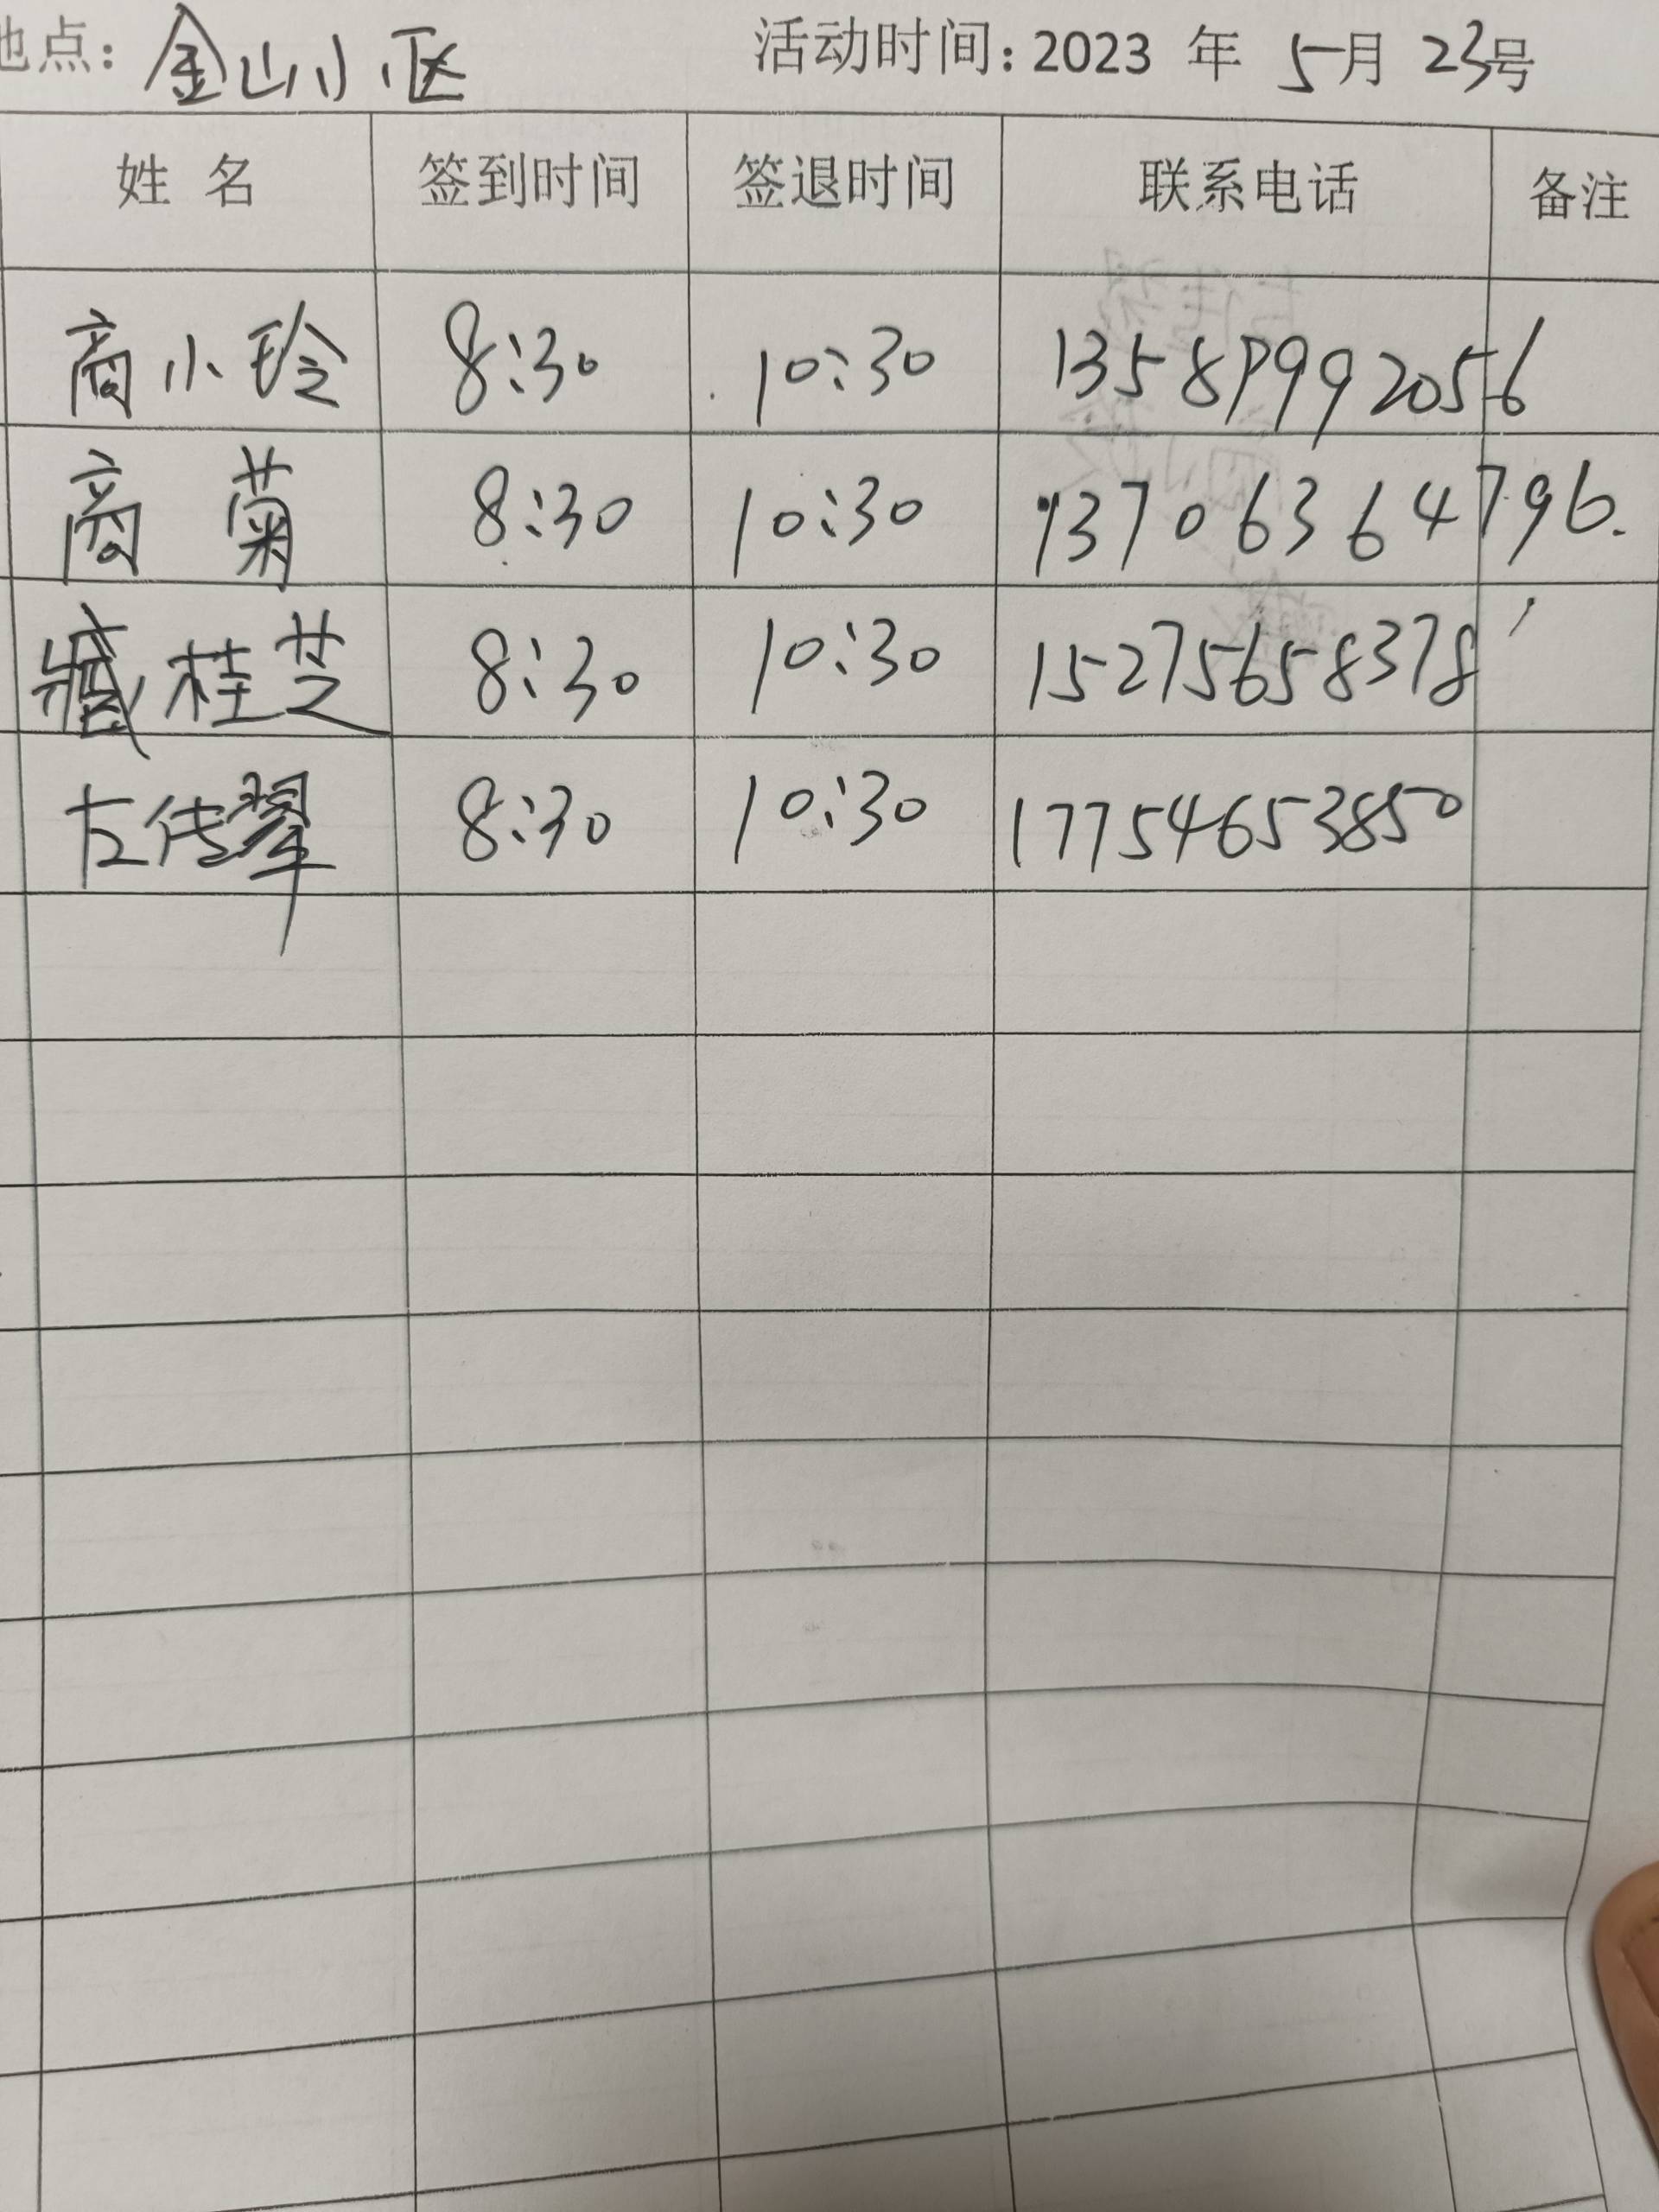 地点: 金山小区 活动时间: 2023 年 5月 23号
姓 名 签到时间 签退时间 联系电话 备注
商小玲 8:30 10:30 13589992056
商 菊 8:30 10:30 13706364796.
臧桂芝 8:30 10:30 15275658378
左传翠 8:30 10:30 17754653850